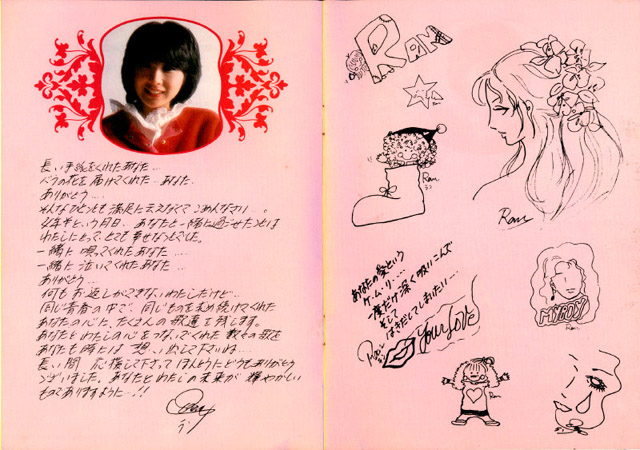 長い手紙をくれたあなた…
バラの花を届けてくれた…あなた
ありがとう…
そんなひとことも満足に云えなくてごめんなさい…。
4年半という月日、あなたと一緒に過ごせたことは
わたしにとって、とても幸せなことでした。
一緒に唄ってくれたあなた…
一緒に泣いてくれたあなた…
ありがとう…
何もお返しができないわたしだけど…
同じ青春の中で、同じものを求め続けてくれた
あなたの心に、たくさんの歌達を残します。
あなたとわたしの心をつないでくれた数々の歌を
あなたも時々は想い出して下さいね…
長い間 応援して下さってほんとうにどうもありがとう
ございました。あなたとわたしの未来が輝やかしい
ものでありますように…!!
Ran
ラン
RAN
Ran
Ran
Ran
あなたの愛という
ケ・ム・リ……
一度だけ深く吸いこんで
そして
Ran
Your Love
MY BOSY
Ran
Ran